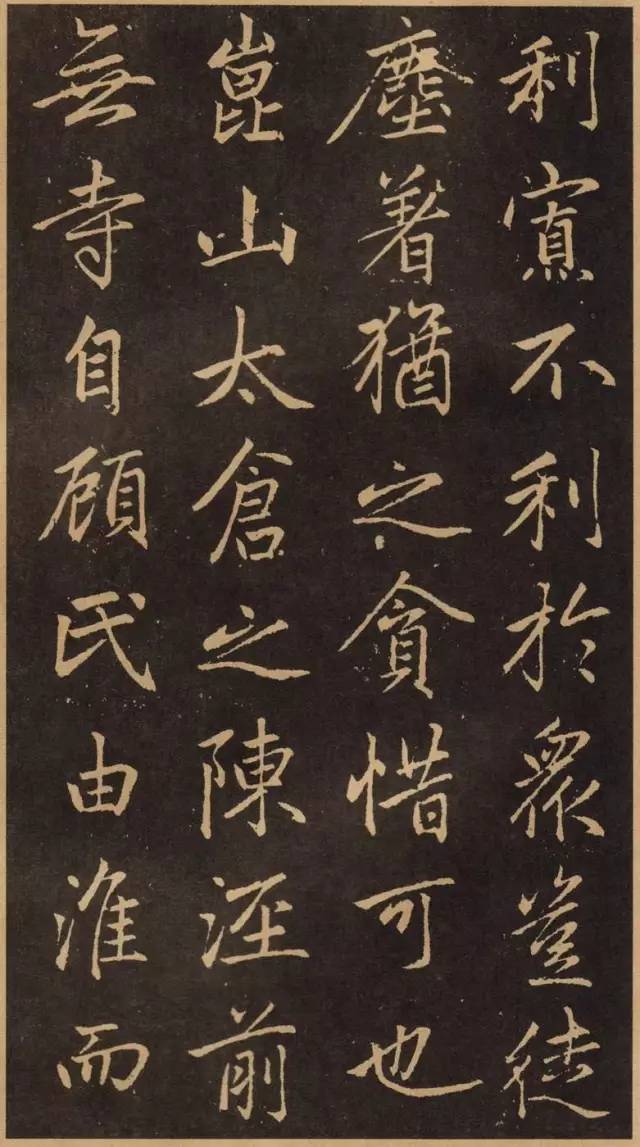 利寘不利於眾豈徒
塵着猶之貪惜可也
崑山太倉之陳涇前
無寺自顧氏由淮而